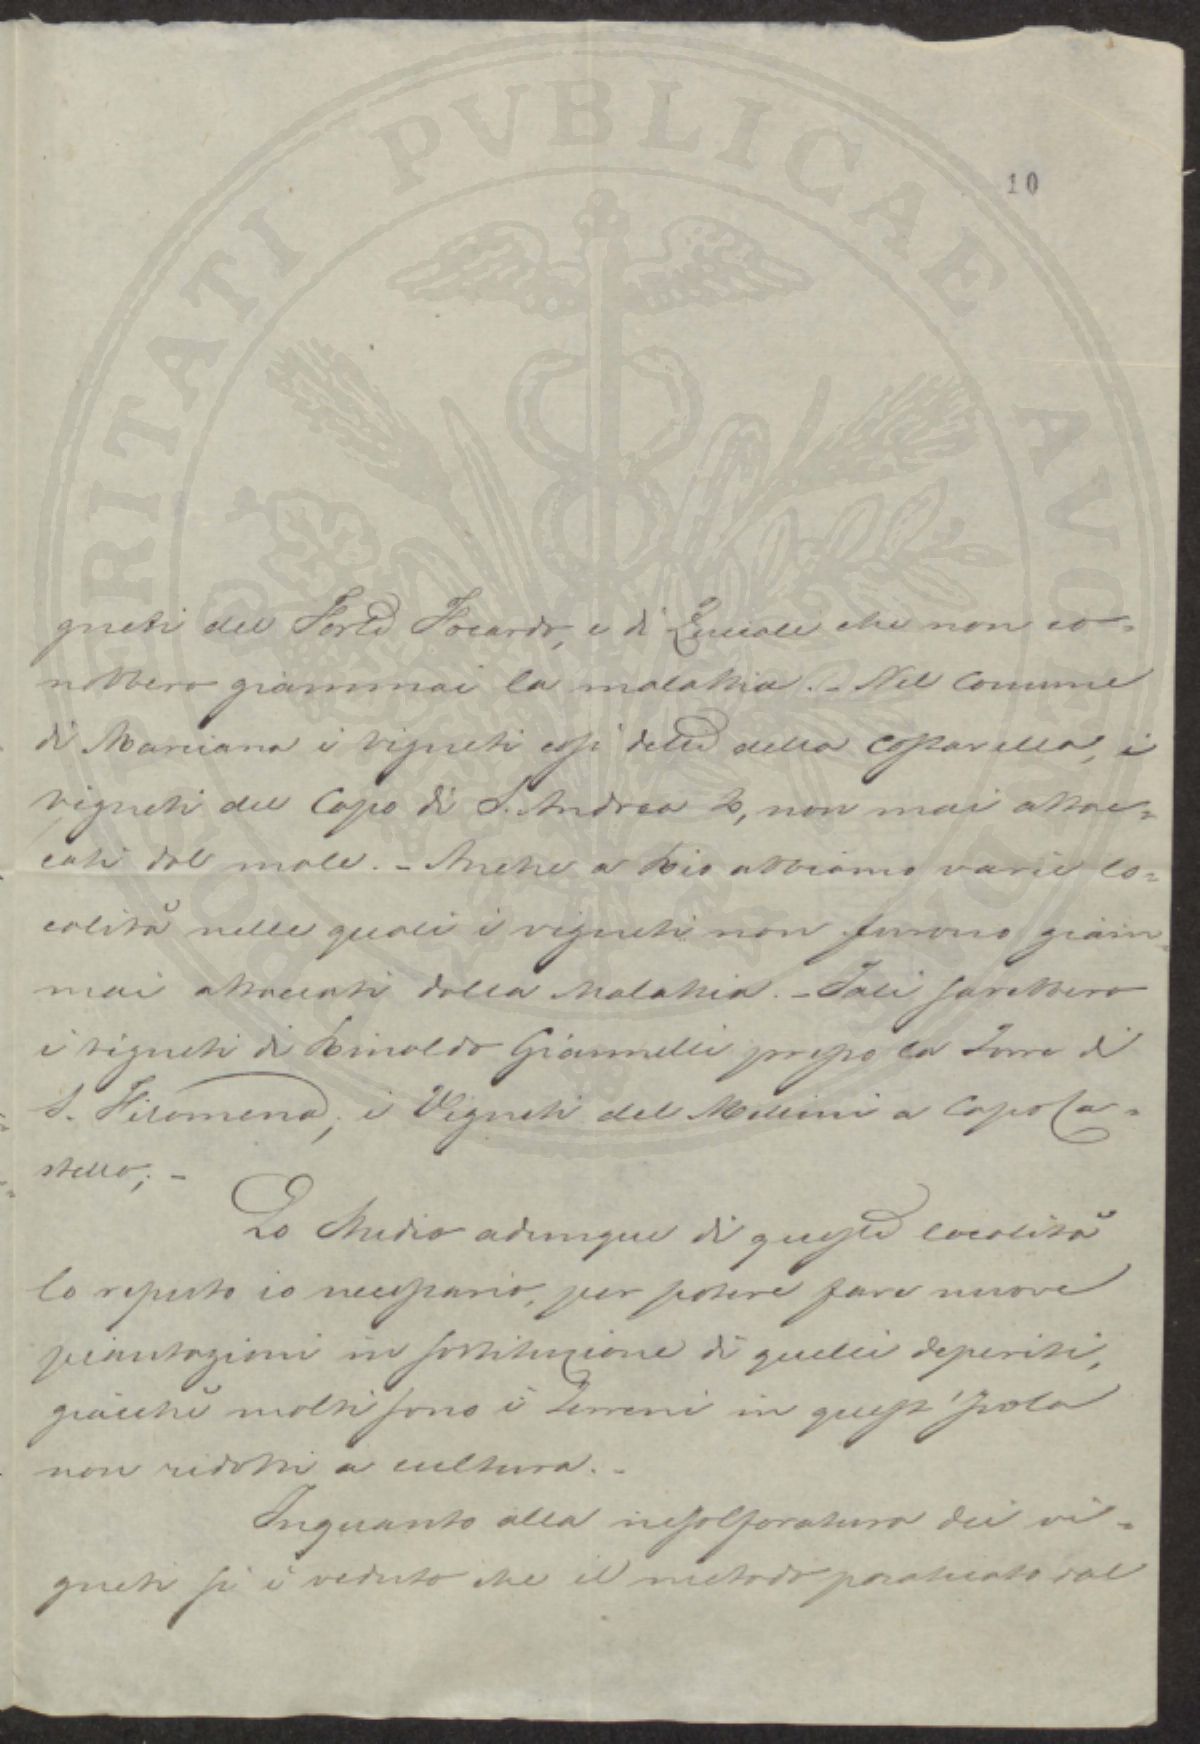 PROSPERITATI PVBLICAE AVGENDAE
10
gneti del Forte Focardo, e di Zuccale che non co=
nobbero giammai la malattia. - Nel Comune
di Marciana i vigneti così detti della Costarella, i
vigneti del Capo di S. Andrea &, non mai attac=
cati dal male. - Anche a Rio abbiamo varie lo=
calità nelle quali i vigneti non furono giam
mai attaccati dalla Malattia. - Tali sarebbero
i vigneti di Rinaldo Giannelli presso la Torre di
S. Filomena, i Vigneti del Mellini a Capo Ca=
stello; -
Lo Studio adunque di queste località
lo reputo io necessario, per potere fare nuove
piantazioni in sostituzione di quelli deperiti,
giacchè molti sono i Terreni in quest'Isola
non ridotti a cultura. -
Inquanto alla insolforatura dei vi=
gneti si è veduto che il metodo praticato dal